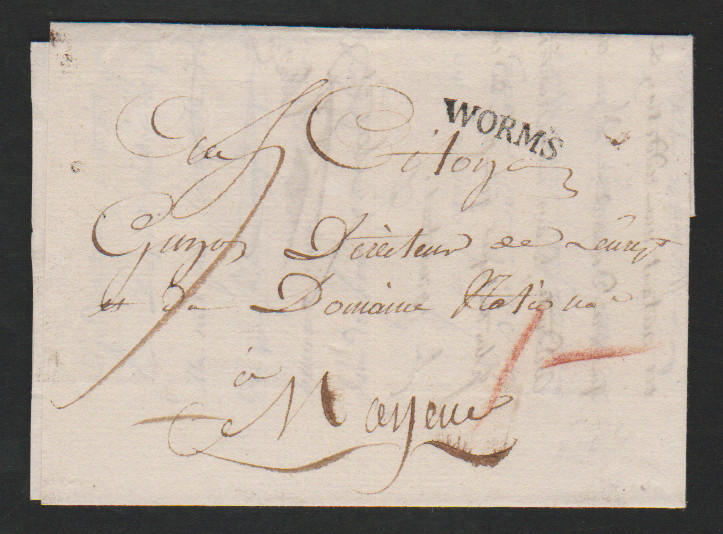 WORMS
Au Citoyen
Guyon Directeur de
et du Domaine National
à
Mayence